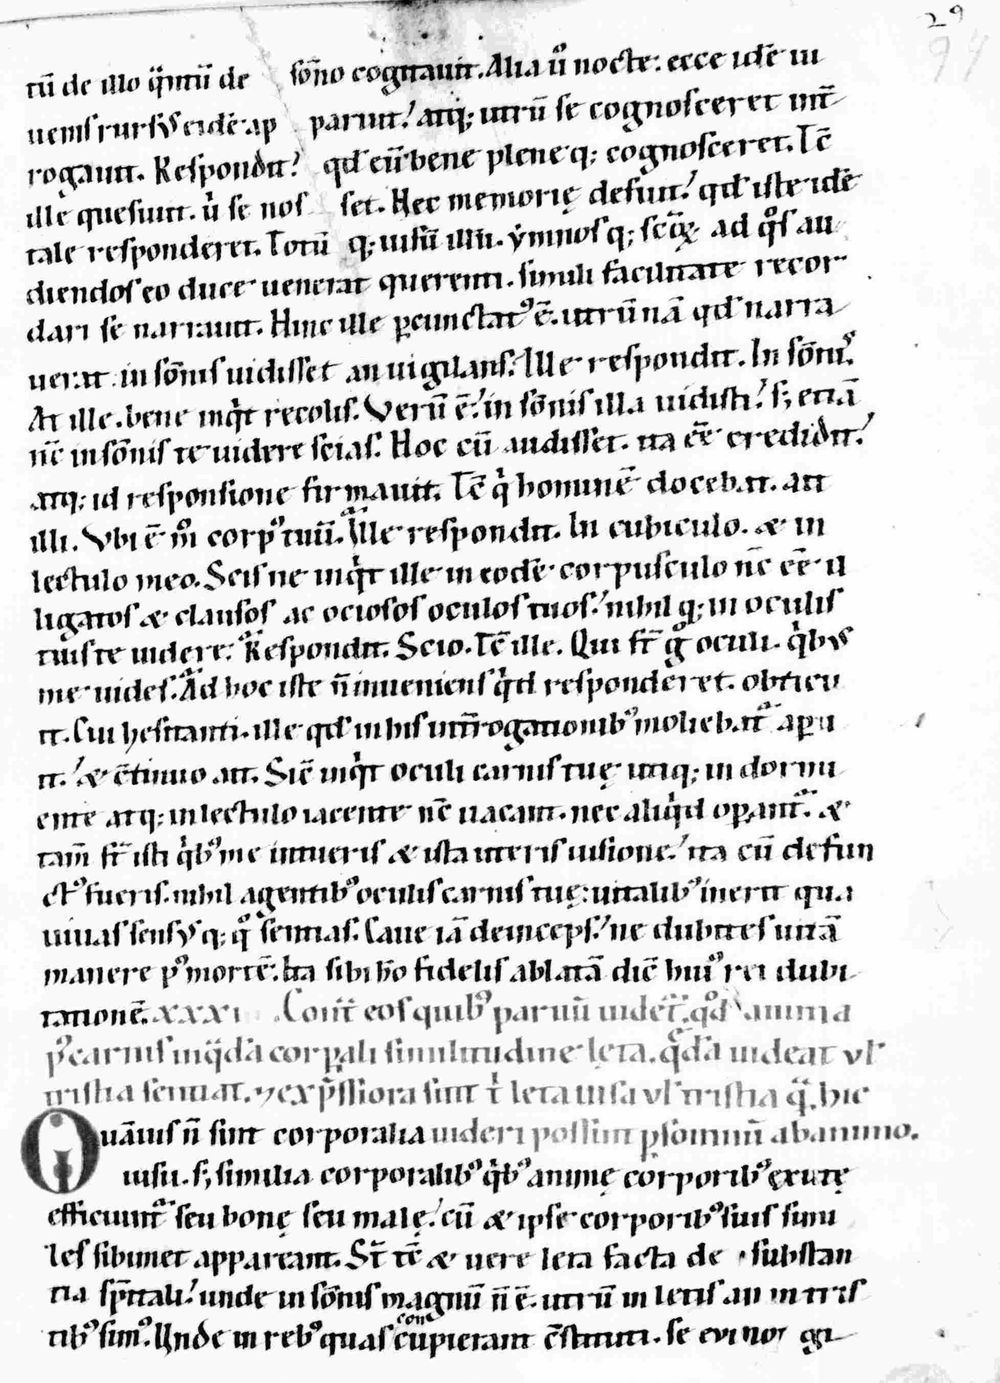 29
94
tū de illo q̈mtū de som̄no cogitauit. Alia ů nocte: ecce idē iu
uenis rursꝰ eidē ap paruit! atq; utrū se cognosceret int̄
rogauit. Respondit! qđ eū bene pleneq; cognosceret. Tc̄
ille quesiuit. u̇ se nos set. Hec memorię defuit! qđ iste idē
tale responderet. Totū q; uisū illū. ẏmnosq; sc̄oꝝ ad q̊s au
diendos eo duce uenerat querenti. simili facilitate recor
dari se narrauit. Hinc ille ꝑcunctatꝰ ē. utrū nā qđ narra
uerat in som̄nis uidisset an uigilans. Ille respondit. In som̄niꝰ.
At ille. bene inq̇t recolis. Verū ē! in som̄nis illa uidisti! s; etiā
nc̄ in som̄nis te uidere scias. Hoc cū audisset. ita ēē credidit!
atq; id responsione firmauit. Tc̄ q̇ hominē docebat. ait
illi. Vbi ē m̊ corpꝰ tuū. Ille respondit. In cubiculo. æ in
lectulo meo. Scis ne inq̇t ille in eodē corpusculo nc̄ ēē il
ligatos æ clausos ac ociosos oculos tuos! nihil q; in oculis
tuis te uidere. Respondit. Scio. Tc̄ ille. Qui st̄ g̊ oculi. q̇bꝰ
me uides. Ad hoc iste n̄ inueniens q̇d responderet. obticu
it. Cui hesitanti. ille qđ in his int̄rogationibꝰ moliebatᷣ aꝑu
it! æ c̄tinuo ait. Sic̄ inq̇t oculi carnis tuę utiq; in dormi
ente atq; in lectulo iacente nc̄ uacant. nec aliq̇d oꝑantᷣ. æ
tam̄ st̄ isti q̇bꝰ me intueris æ ista uteris uisione! ita cū defun
ctꝰ fueris. nihil agentibꝰ oculis carnis tuę: uitalibꝰ inerit qua
uiuas sensꝰ q; q̊ sentias. Caue iā deinceps! ne dubites uitā
manere pꝰ mortē. Ita sibi ho fidelis ablatā dic̄ huiꝰ rei dubi
tationē. XXXI Cont̄ eos quibꝰ parum̄ uidetᷣ. qđ anima
pꝰ carnis inq̈dā corꝑali similitudine lęta. q̈dā uideat vl
tristia sentiat. ⁊ exp̄ssiora sint i̇ leta uisa vl tristia q̄. hic
Quāuis n̄ sint corporalia uideri possunt ꝑ somnum ab animo.
uisu. s; similia corporalibꝰ q̇bꝰ animę corporibꝰ exutę
efficiuntᷣ seu bonę seu malę! cū æ ipse corporibꝰ suis simi
les sibimet appareant. St̄ tc̄ æ uere leta facta de substan
tia sp̄itali! unde in som̄nis magnū n̄ ē. utrū in letis an in tris
tibꝰ simꝰ. Unde in rebꝰ quas cūpierant c̄stituti. se euino gi